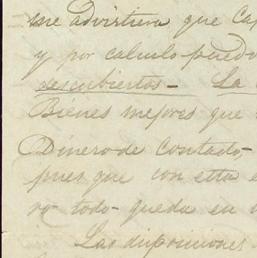 me advirtiera que Cap
y por calculo puedo
descubiertos - La
Bienes mejores que
Dinero de Contado,
pues que con esta e
ro todo queda en
Las disposiciones